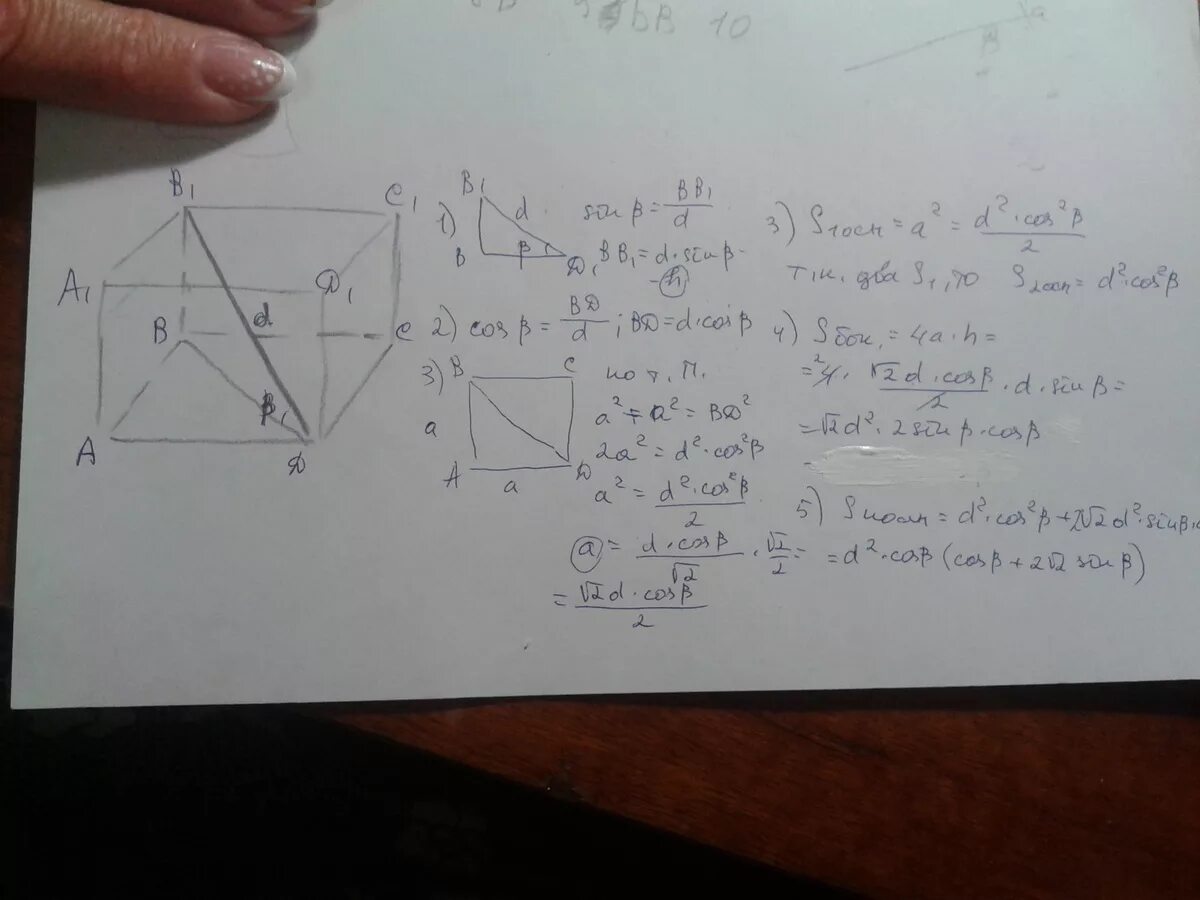 B₁
C₁
A₁
D₁
d
B
C
β
A
D
1)
B₁
d
β
B
D
sin β = BB₁/d
BB₁ = d·sin β - h
2) cos β = BD/d ; BD = d·cos β
3)
B
C
a
A
a
D
по т. П.
a² + a² = BD²
2a² = d²·cos²β
a² = d²·cos²β/2
a = d·cos β/√2 · √2/2 =
= √2d·cos β/2
3) S₁осн = a² = d²·cos²β/2
т.к. два S₁, то S₂осн = d²·cos²β
4) Sбок. = 4a·h =
= ²4 · √2d·cosβ/2 · d·sin β =
= √2d²·2sin β·cosβ
5) Sполн = d²·cos²β + 2√2d²·sinβ·
= d²·cosβ (cosβ + 2√2 sin β)